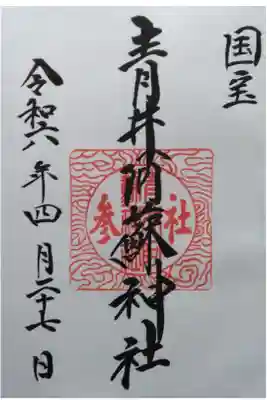 国宝
青井阿蘇神社
令和六年四月二十七日